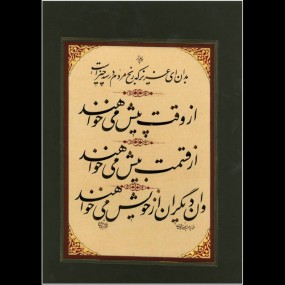 بدان ای عزیز که رنج مردم در سه چیز است
از وقت پیش می خواهند
از قسمت بیش می خواهند
وان دیگران از خویش می خواهند